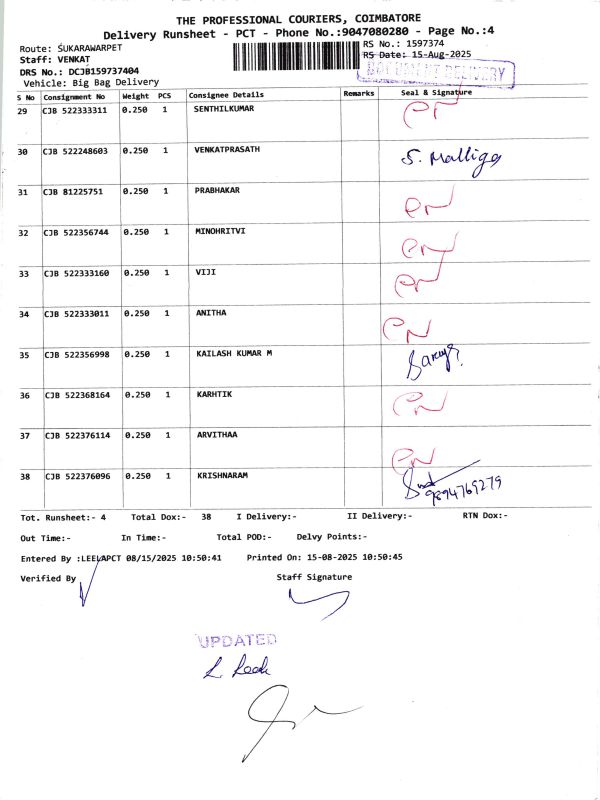 THE PROFESSIONAL COURIERS, COIMBATORE
Delivery Runsheet - PCT - Phone No.:9047080280 - Page No.:4
Route: SUKARAWARPET
RS No.: 1597374
Staff: VENKAT
RS Date: 15-Aug-2025
DRS No.: DCJB159737404
DOCUMENT DELIVERY
Vehicle: Big Bag Delivery
S No Consignment No Weight PCS Consignee Details Remarks Seal & Signature
29 CJB 522333311 0.250 1 SENTHILKUMAR
30 CJB 522248603 0.250 1 VENKATPRASATH S. Malliga
31 CJB 81225751 0.250 1 PRABHAKAR
32 CJB 522356744 0.250 1 MINOHRITVI
33 CJB 522333160 0.250 1 VIJI
34 CJB 522333011 0.250 1 ANITHA
35 CJB 522356998 0.250 1 KAILASH KUMAR M
36 CJB 522368164 0.250 1 KARHTIK
37 CJB 522376114 0.250 1 ARVITHAA
38 CJB 522376096 0.250 1 KRISHNARAM
9894769279
Tot. Runsheet:- 4 Total Dox:- 38 I Delivery:- II Delivery:- RTN Dox:-
Out Time:- In Time:- Total POD:- Delvy Points:-
Entered By :LEELAPCT 08/15/2025 10:50:41 Printed On: 15-08-2025 10:50:45
Verified By Staff Signature
UPDATED